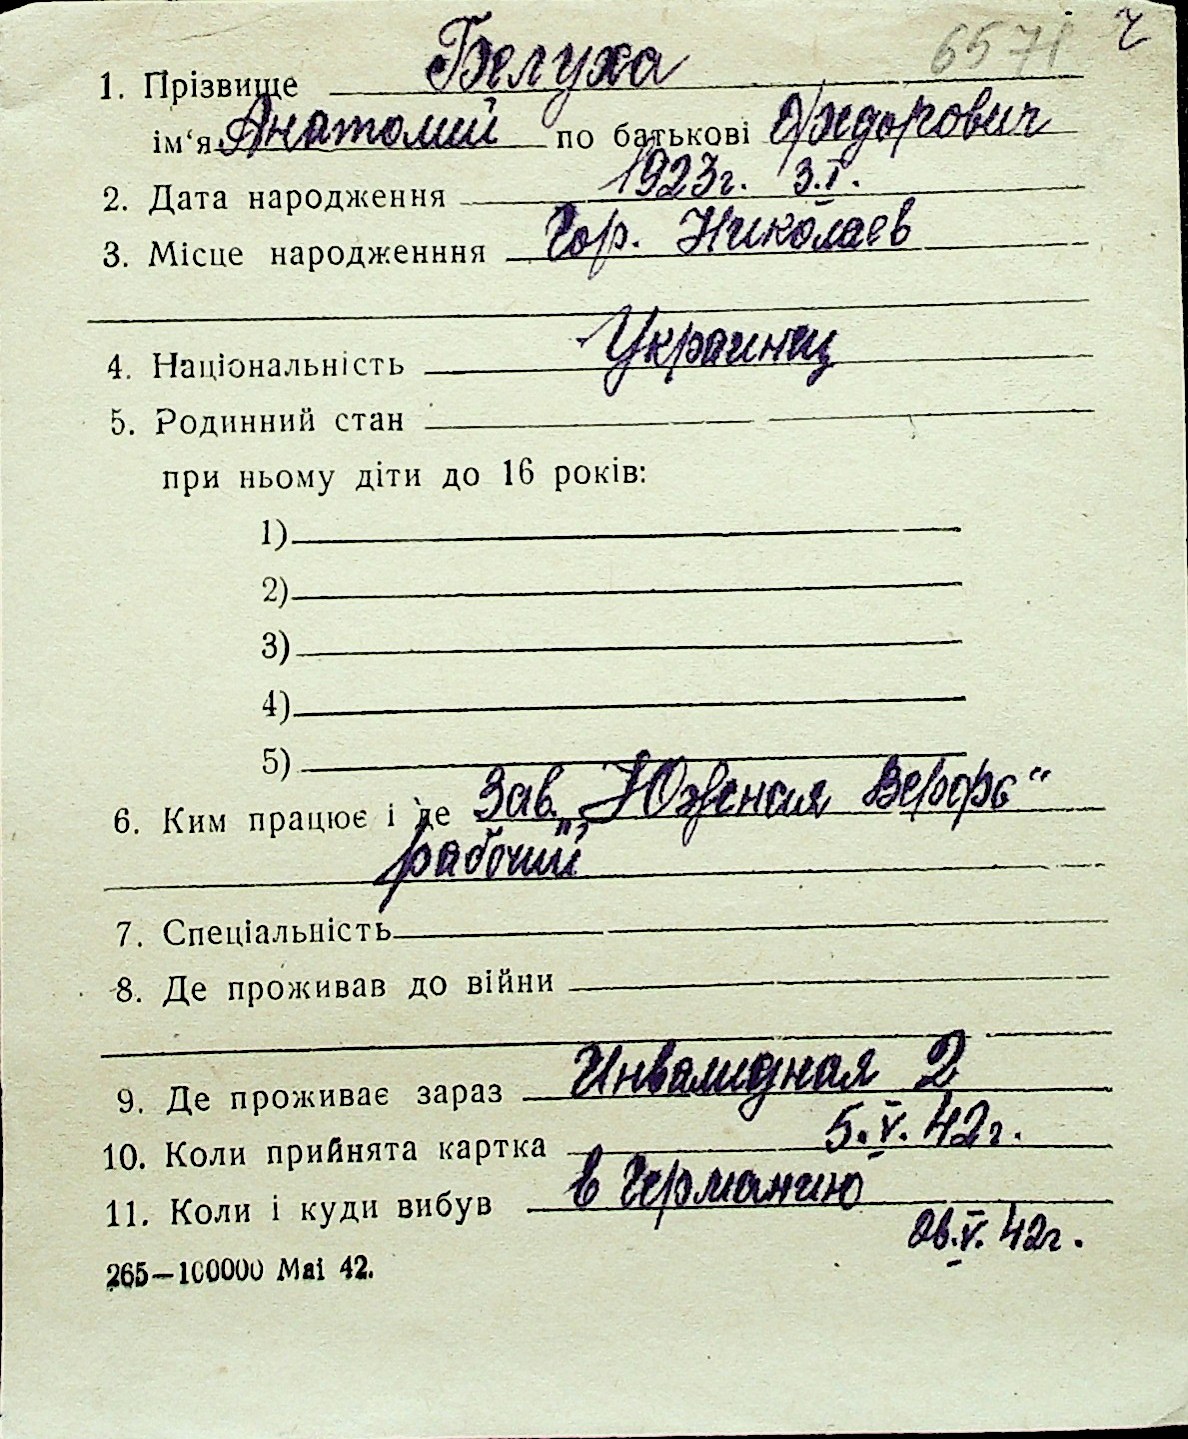 6571 ч
1. Прізвище Белуха
ім‘я Анатолий по батькові Фёдорович
2. Дата народження 1923г. 3.I.
3. Місце народженння Гор. Николаев
4. Національність Украинец
5. Родинний стан
при ньому діти до 16 років:
1)
2)
3)
4)
5)
6. Ким працює і де Зав. „Южная Верфь“
рабочий
7. Спеціальність
8. Де проживав до війни
9. Де проживає зараз Инвалидная 2
10. Коли прийнята картка 5.V.42г.
11. Коли і куди вибув в Германию
26.V.42г.
265—100000 Mai 42.